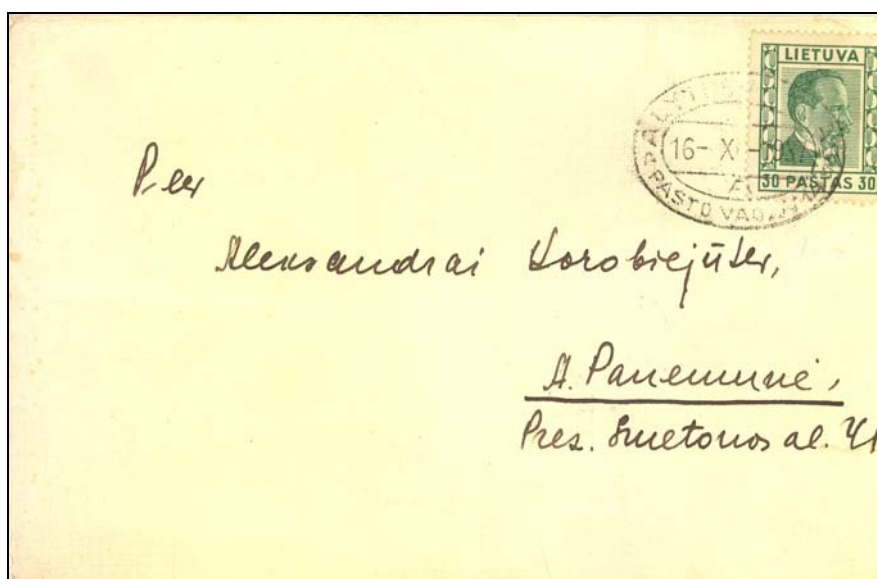 LIETUVA
16- X
30 PAŠTAS 30
PAŠTO VAG
P-lei
Aleksandrai Vorobiejūtei,
A. Panemunė,
Prez. Smetonos al.